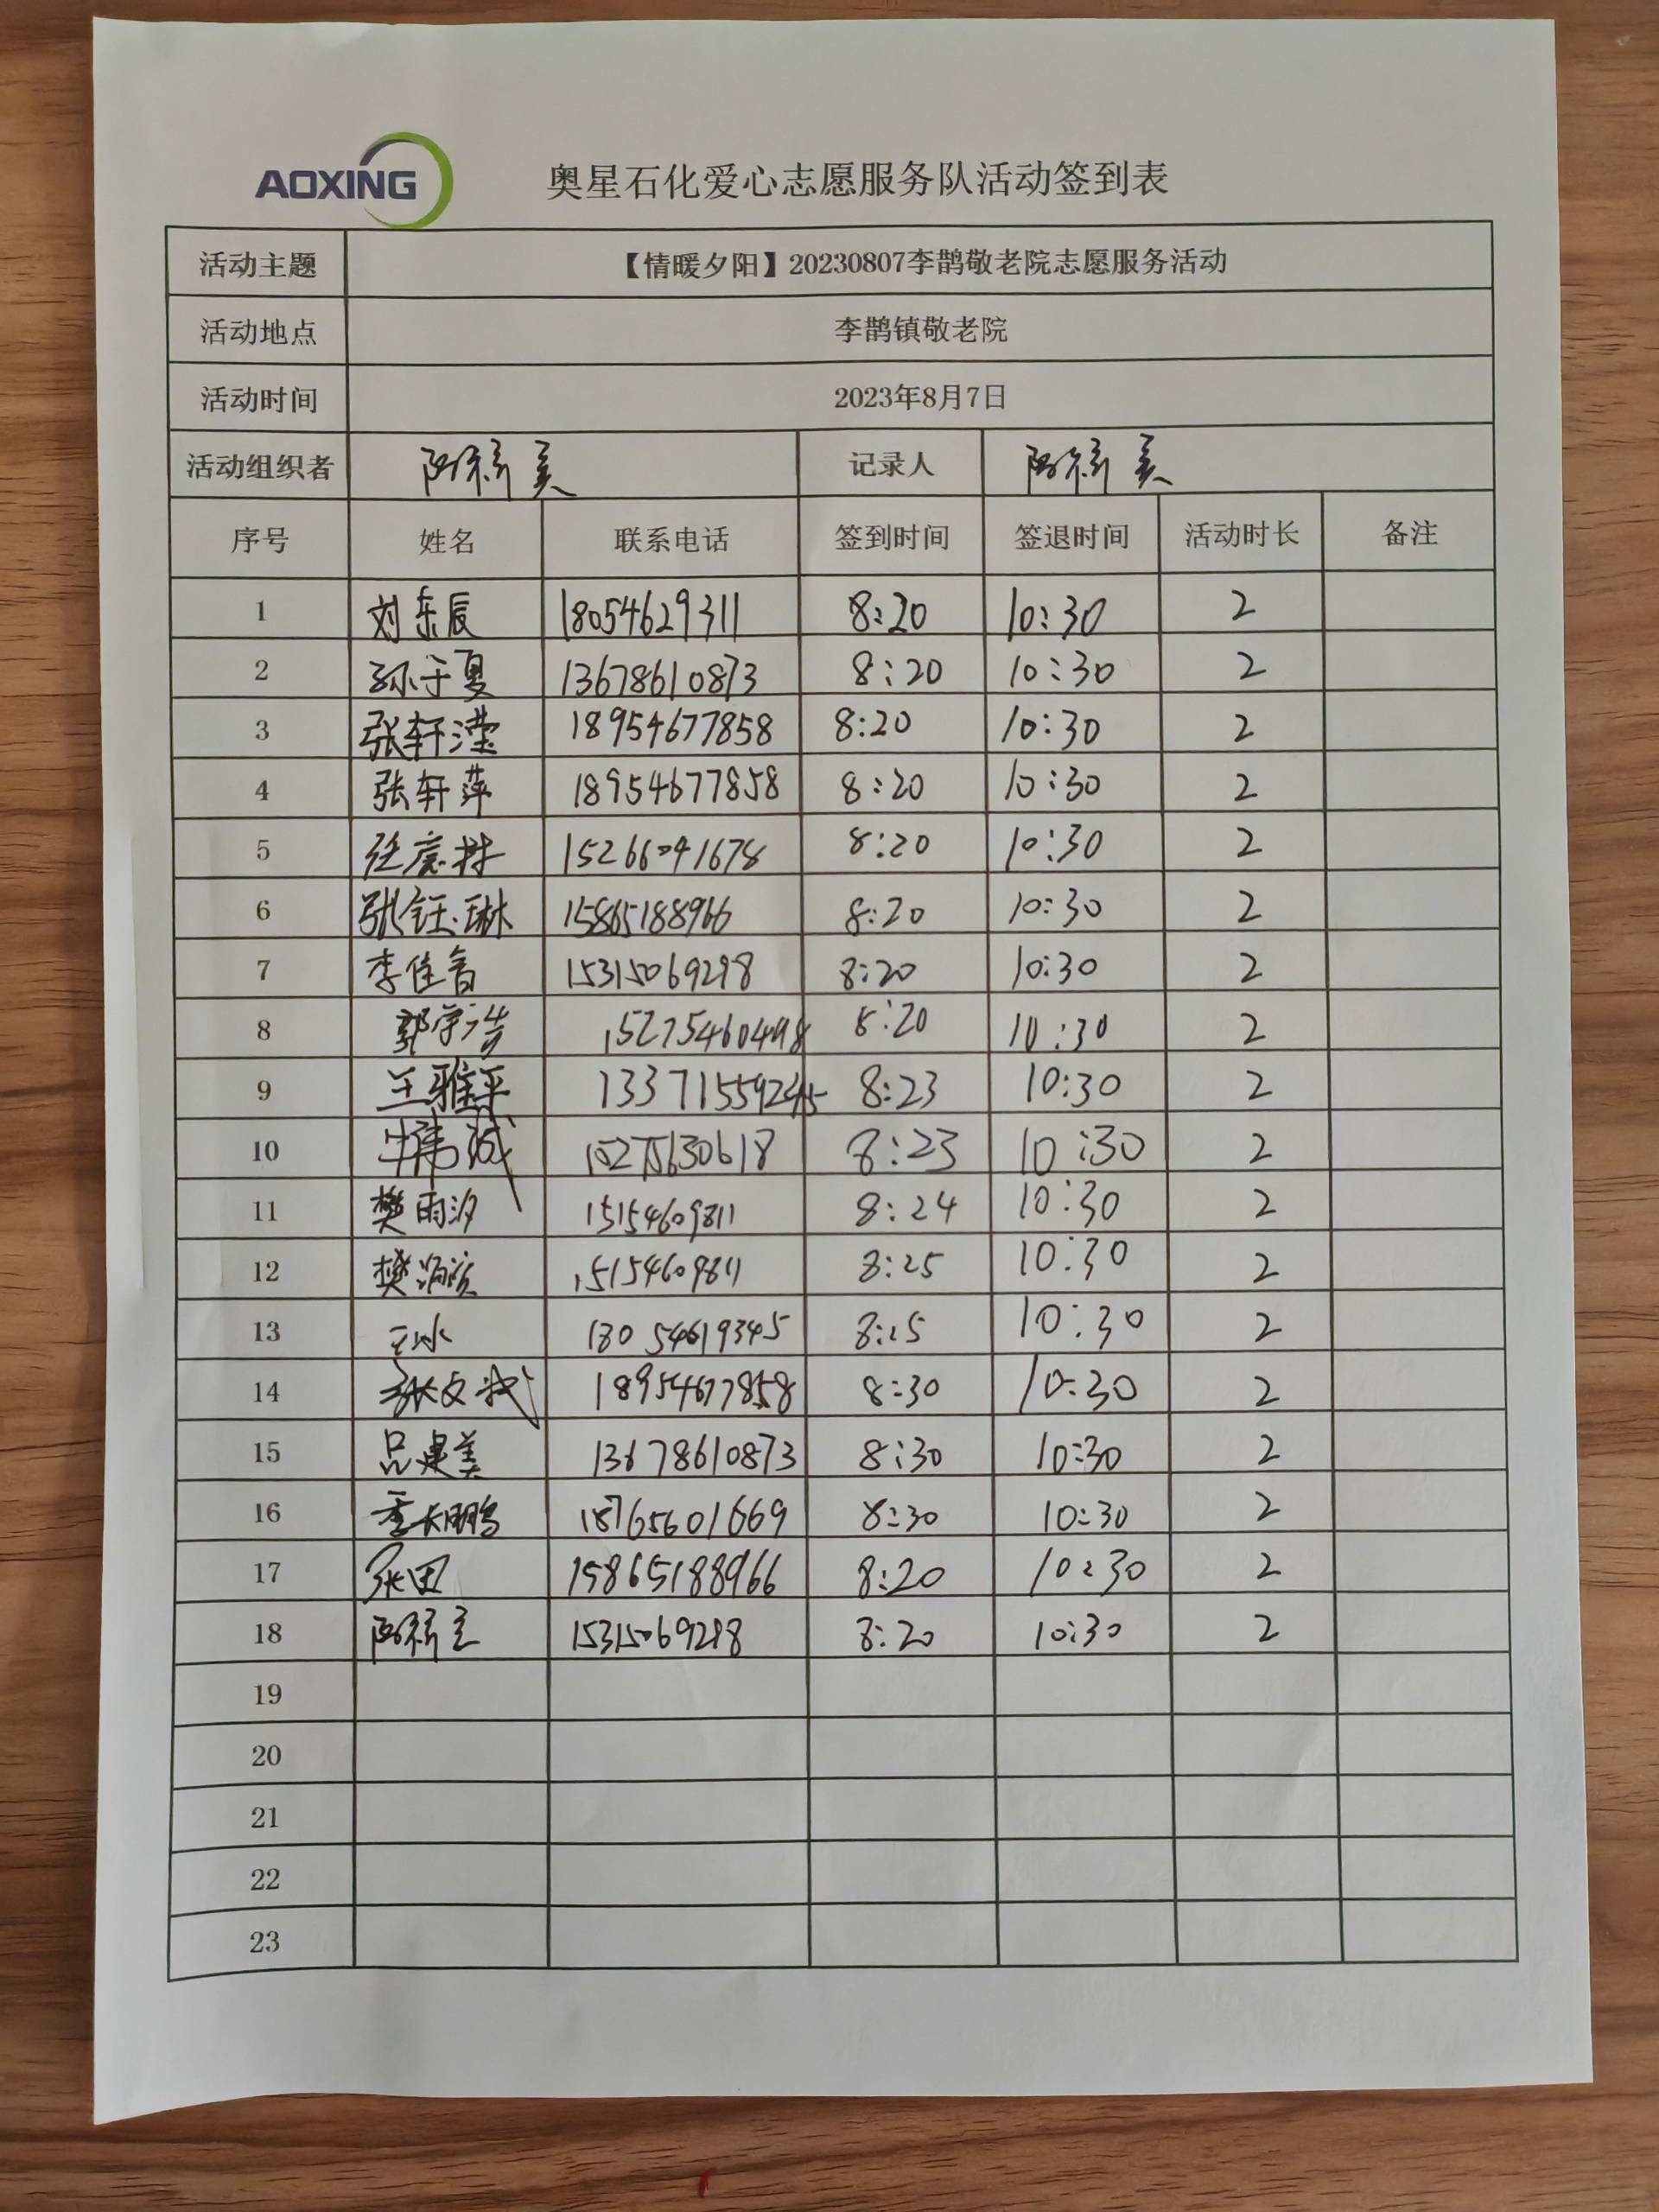 AOXING
奥星石化爱心志愿服务队活动签到表
活动主题 【情暖夕阳】20230807李鹊敬老院志愿服务活动
活动地点 李鹊镇敬老院
活动时间 2023年8月7日
活动组织者 记录人
序号 姓名 联系电话 签到时间 签退时间 活动时长 备注
1 刘东辰 18054629311 8:20 10:30 2
2 孙于夏 13678610873 8:20 10:30 2
3 张轩滢 18954677858 8:20 10:30 2
4 张轩萍 18954677858 8:20 10:30 2
5 15266041678 8:20 10:30 2
6 张钰琳 15865188966 8:20 10:30 2
7 李佳音 15315069298 8:20 10:30 2
8 郭宇浩 15275460498 8:20 10:30 2
9 王雅平 13371559245 8:23 10:30 2
10 牛伟诚 15275630618 8:23 10:30 2
11 樊雨汐 15154609811 8:24 10:30 2
12 15154609811 8:25 10:30 2
13 王冰 18054619345 8:25 10:30 2
14 18954677858 8:30 10:30 2
15 吕建美 13678610873 8:30 10:30 2
16 李大鹏 18765601669 8:30 10:30 2
17 张田 15865188966 8:20 10:30 2
18 15315069298 8:20 10:30 2
19
20
21
22
23